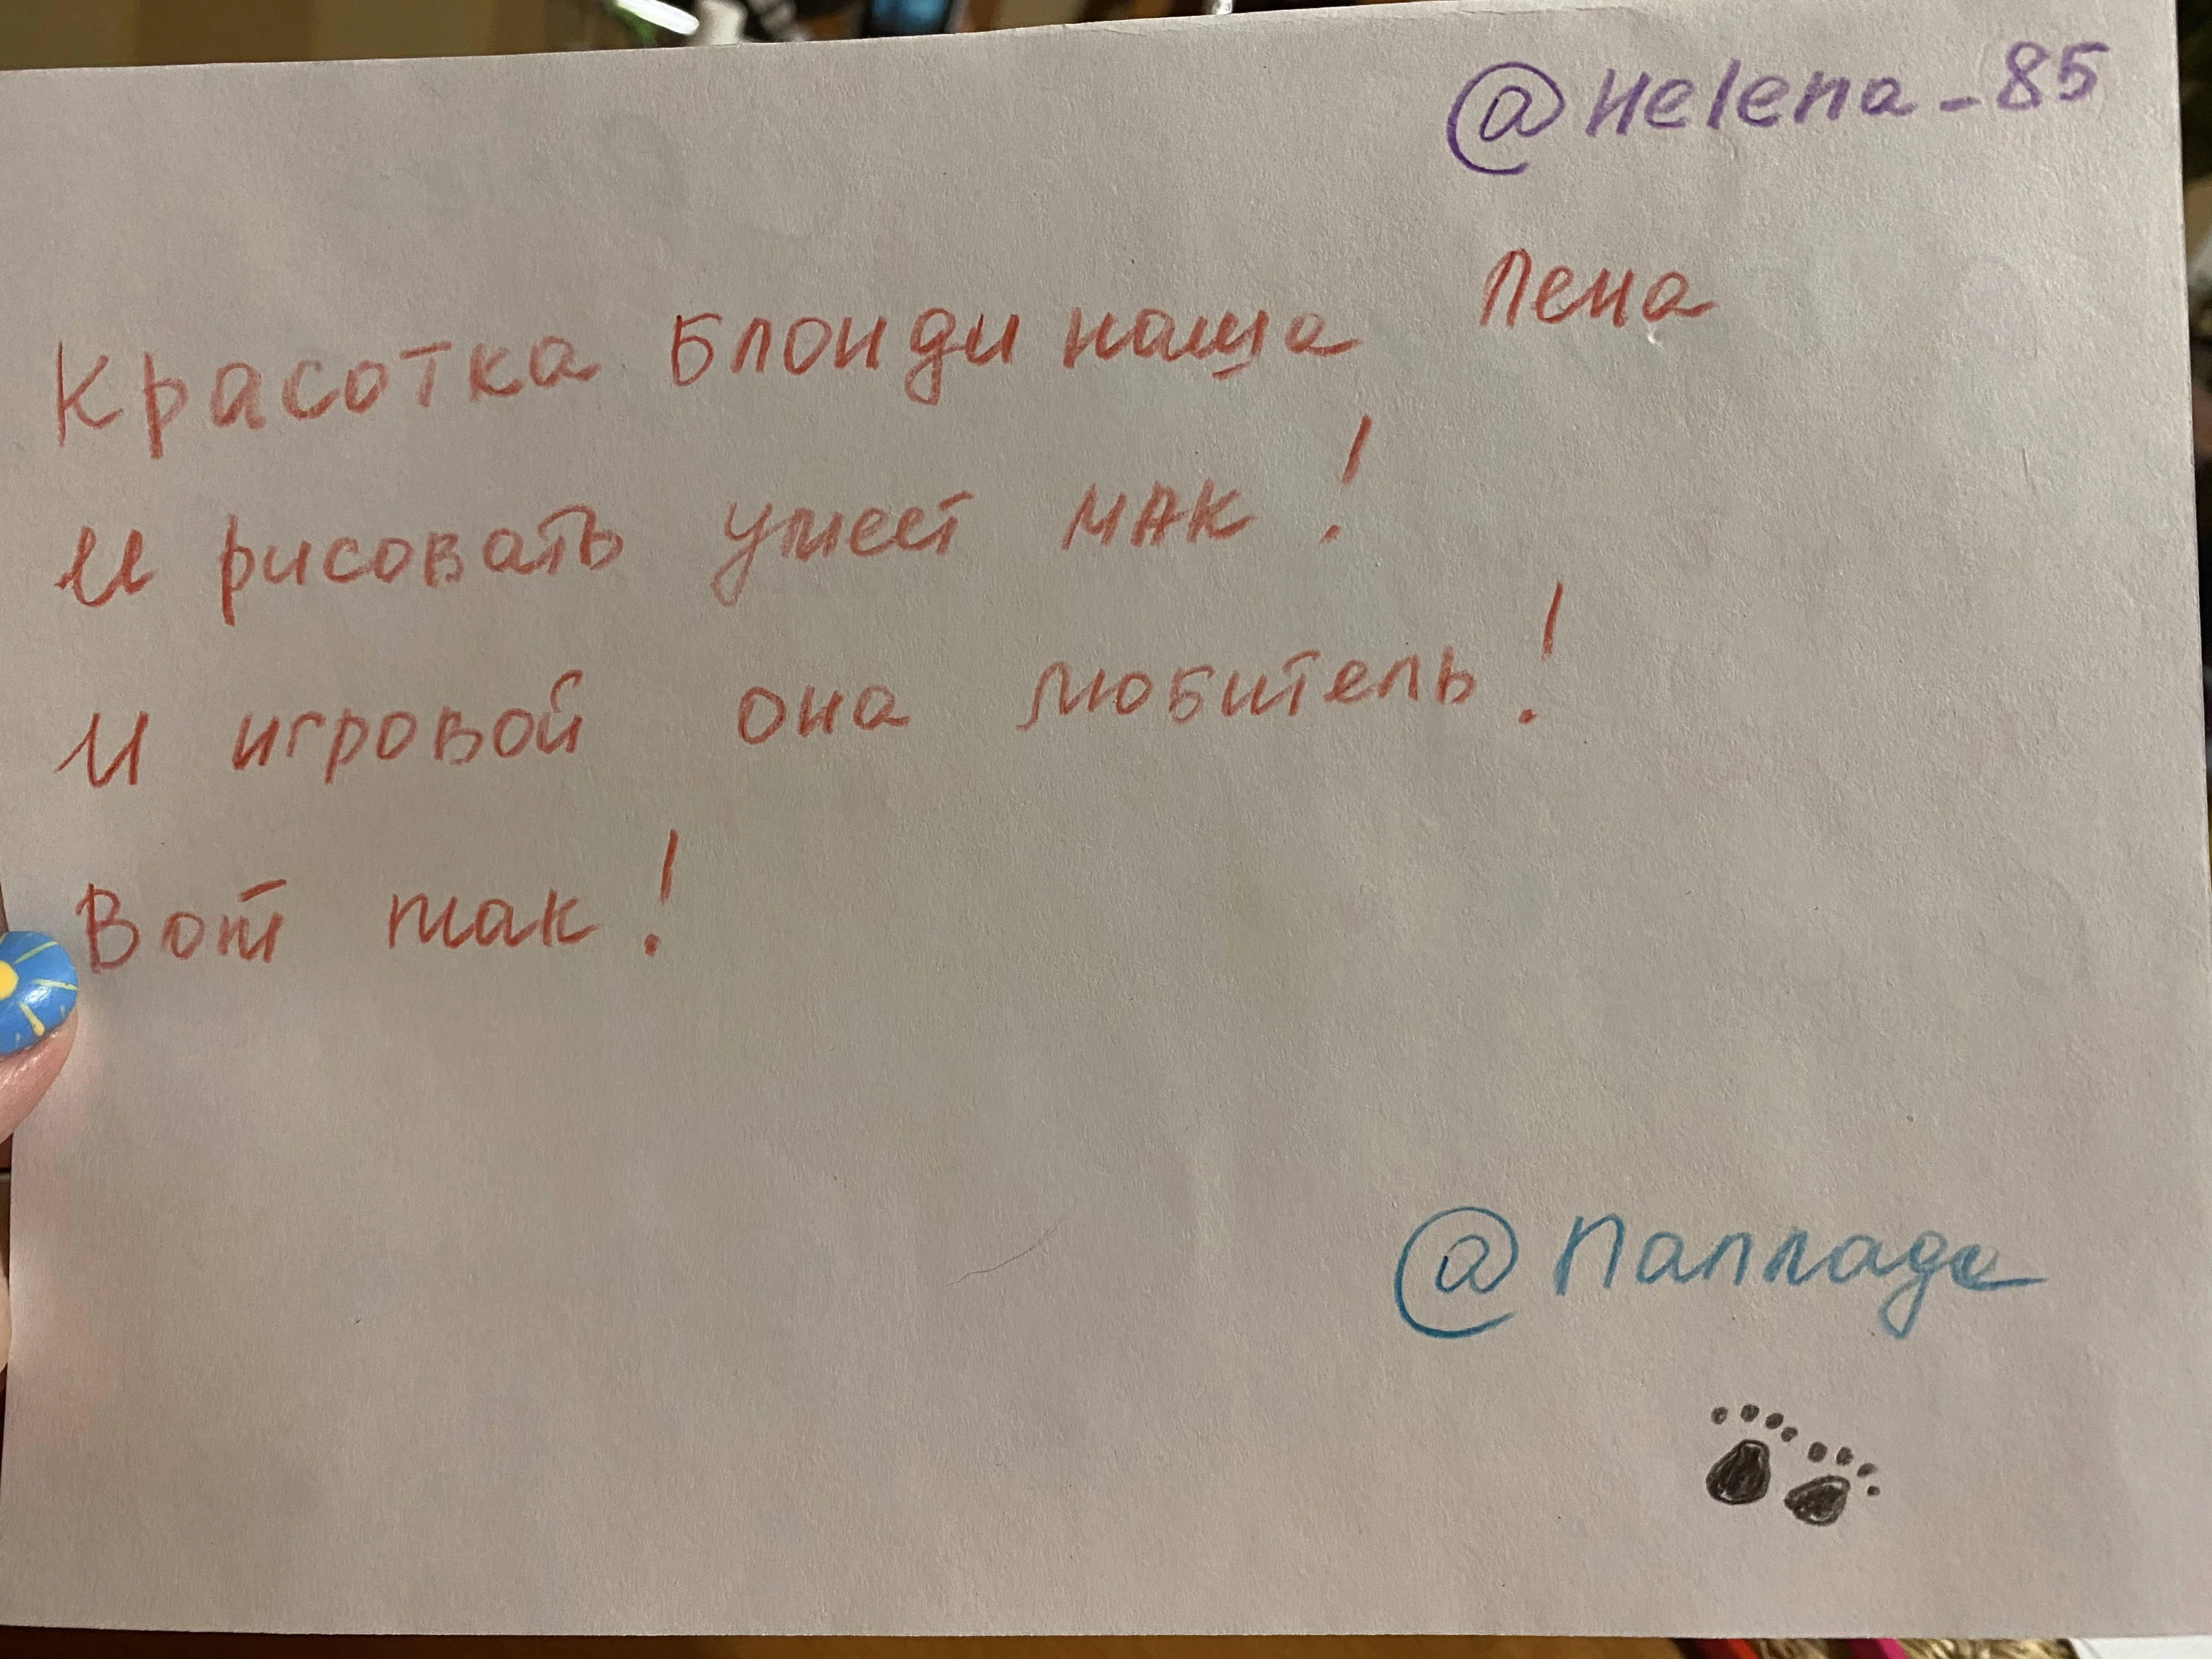 @Helena_85
Красотка Блонди наша Лена
И рисовать умеет МАК!
И игровой она любитель!
Вот так!
@Паллада